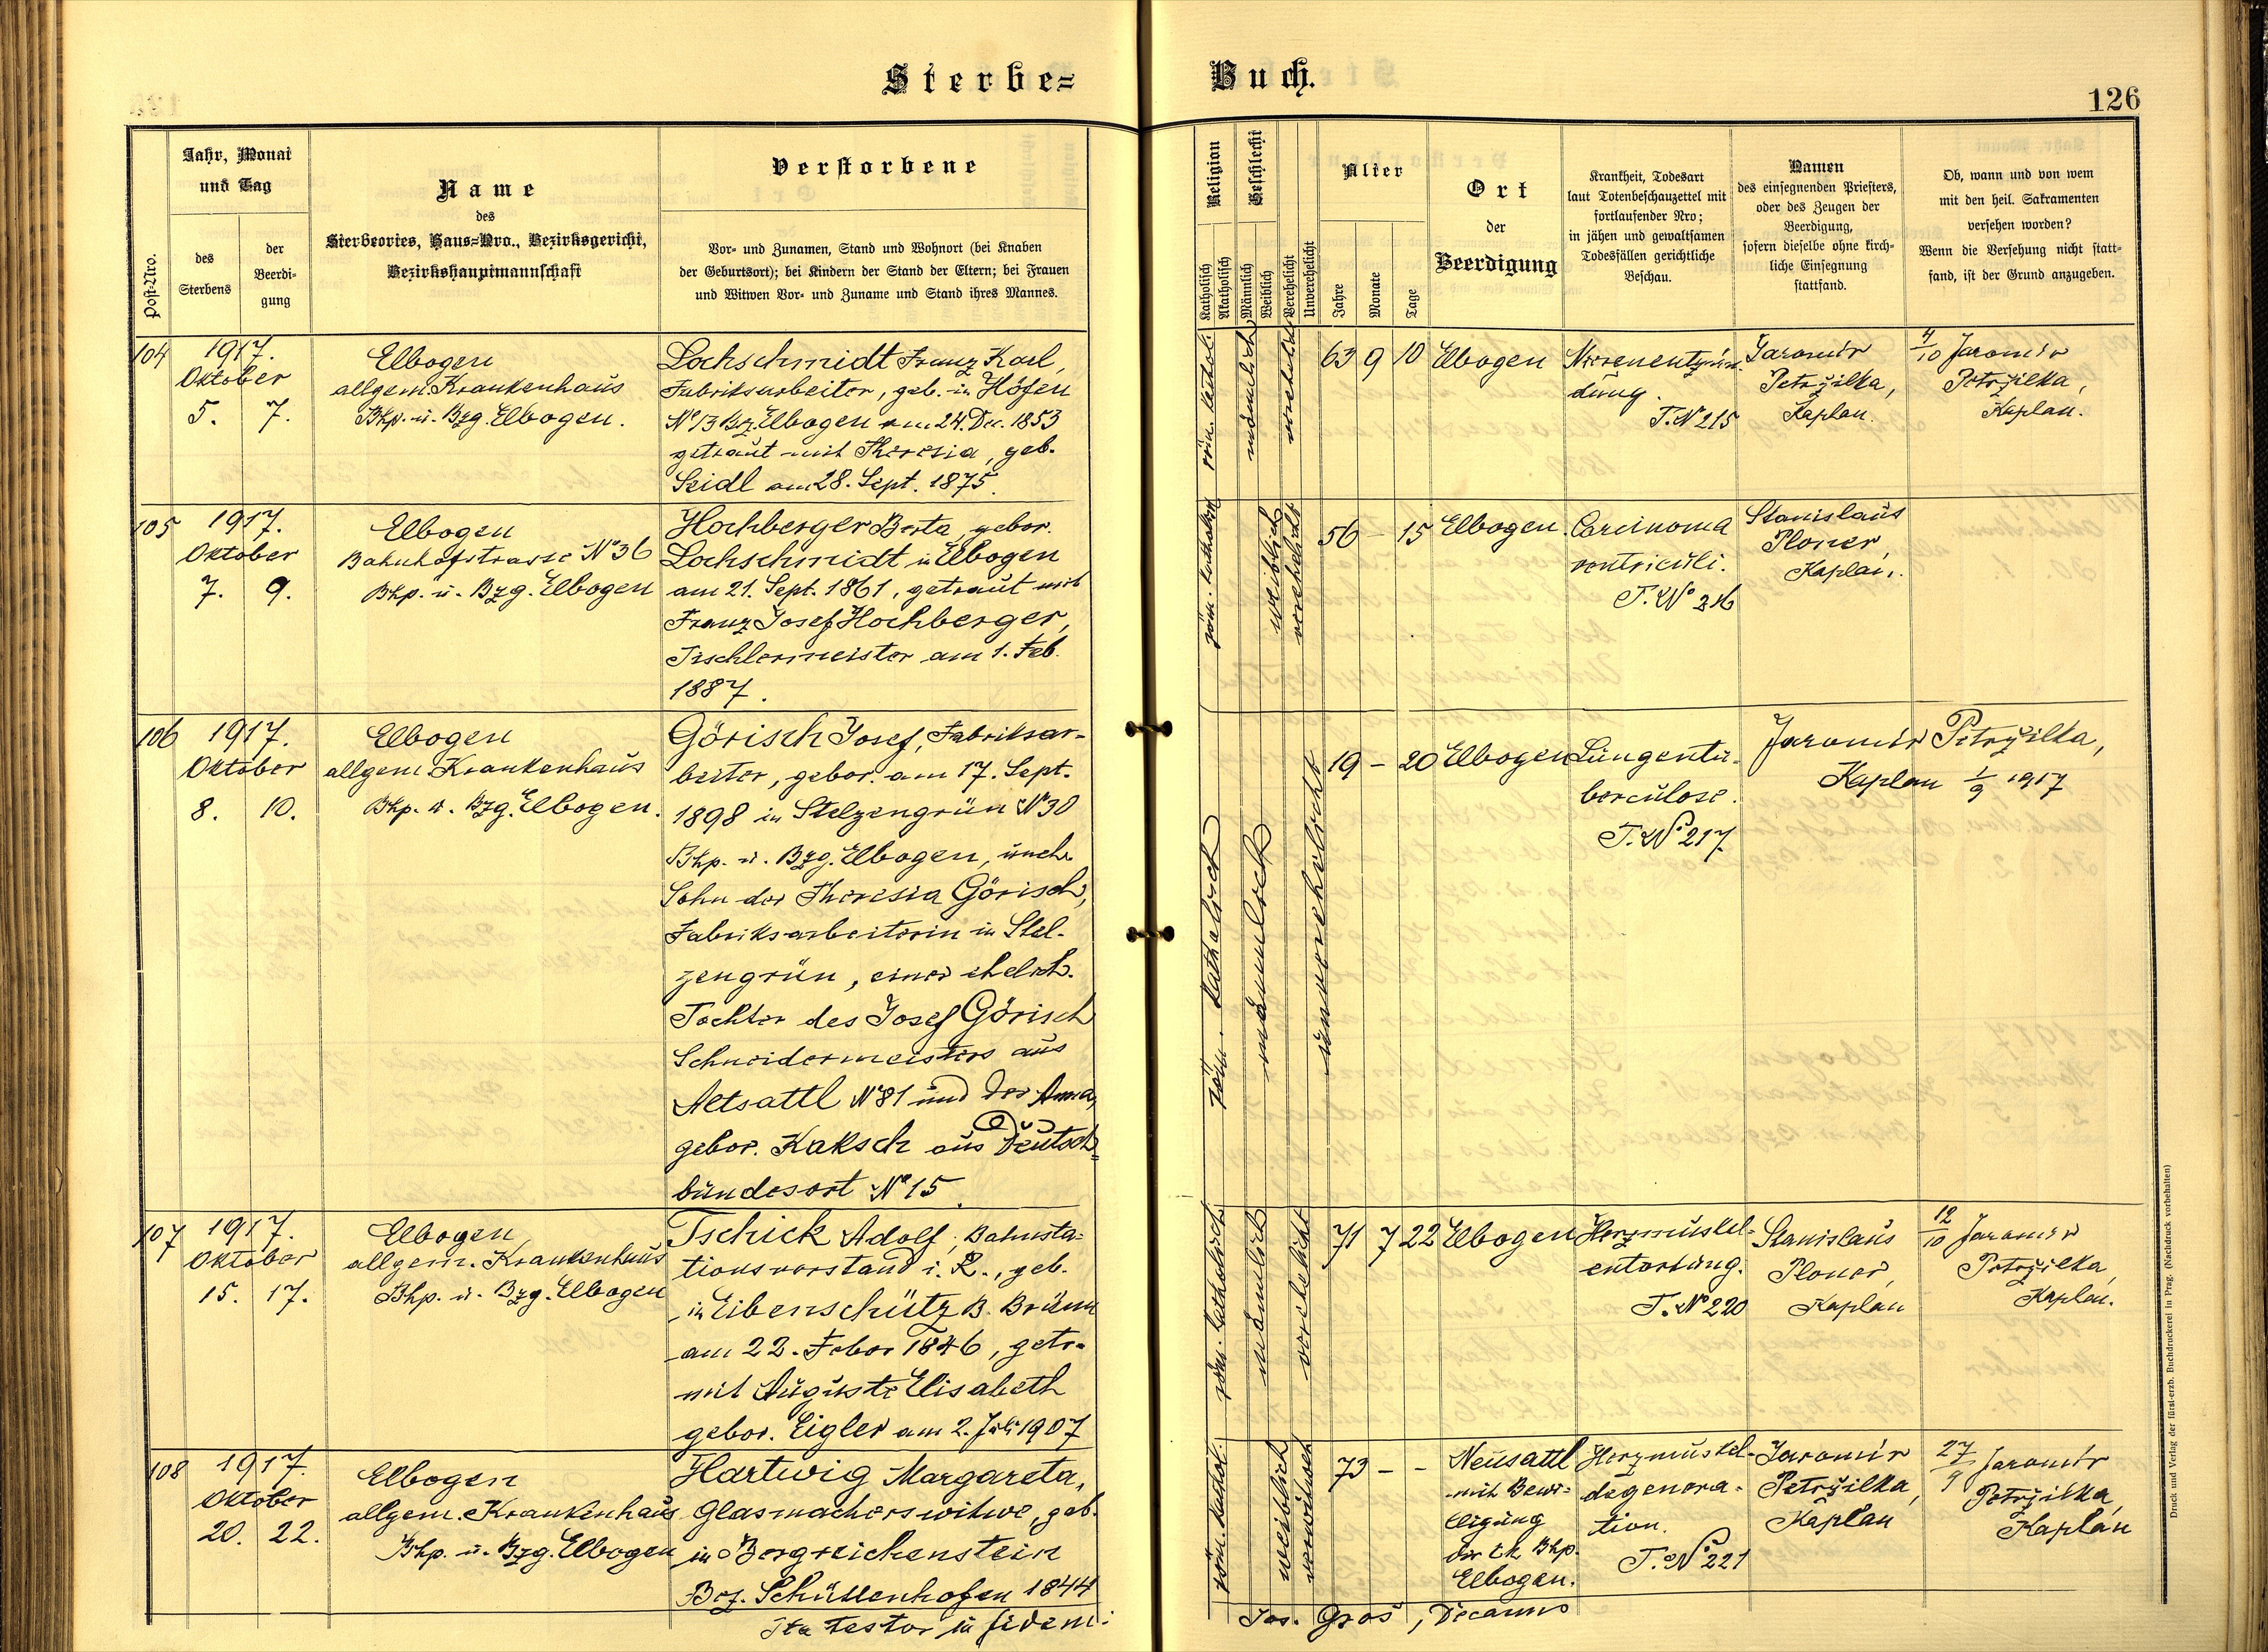 Sterbe-
Buch.
126
Post-Nro.
Jahr, Monat
und Tag
des
Sterbens
der
Beerdi-
gung
Name
des
Sterbeortes, Haus-Nro., Bezirksgericht,
Bezirkshauptmannschaft
Verstorbene
Vor- und Zunamen, Stand und Wohnort (bei Knaben
der Geburtsort); bei Kindern der Stand der Eltern; bei Frauen
und Witwen Vor- und Zuname und Stand ihres Mannes.
Religion
Katholisch
Akatholisch
Geschlecht
Männlich
Weiblich
Verehelicht
Unverehelicht
Alter
Jahre
Monate
Tage
Ort
der
Beerdigung
Krankheit, Todesart
laut Totenbeschauzettel mit
fortlaufender Nro;
in jähen und gewaltsamen
Todesfällen gerichtliche
Beschau.
Namen
des einsegnenden Priesters,
oder des Zeugen der
Beerdigung,
sofern dieselbe ohne kirch-
liche Einsegnung
stattfand.
Ob, wann und von wem
mit den heil. Sakramenten
versehen worden?
Wenn die Versehung nicht statt-
fand, ist der Grund anzugeben.
104
1917.
Oktober
5. 7.
Elbogen
allgem. Krankenhaus
Bhp. u. Bzg. Elbogen.
Lochschmidt Franz Karl,
Fabriksarbeiter, geb. in Höfen
No 13 Bz. Elbogen am 24. Dec. 1853
getraut mit Theresia, geb.
Seidl am 28. Sept. 1875.
röm. kathol.
männlich
verehelicht
63 9 10
Elbogen
Nierenentzün-
dung.
T. No 215
Jaromir
Petržilka,
Kaplan.
4/10 Jaromir
Petržilka,
Kaplan.
105
1917.
Oktober
7. 9.
Elbogen
Bahnhofstrasse No 36
Bhp. u. Bzg. Elbogen
Hochberger Berta, gebor.
Lochschmidt in Elbogen
am 21. Sept. 1861, getraut mit
Franz Josef Hochberger,
Tischlermeister am 1. Feb.
1887.
röm. katholisch
weiblich
verehelicht
56 - 15
Elbogen
Carcinoma
ventriculi.
T. No 216
Stanislaus
Ploner,
Kaplan.
106
1917.
Oktober
8. 10.
Elbogen
allgem. Krankenhaus
Bhp. u. Bzg. Elbogen.
Görisch Josef, Fabriksar-
beiter, gebor. am 17. Sept.
1898 in Stelzengrün No 30
Bhp. u. Bzg. Elbogen, unehe.
Sohn der Theresia Görisch,
Fabriksarbeiterin in Stel-
zengrün, einer ehelich.
Tochter des Josef Görisch
Schneidermeisters aus
Altsattl No 81 und der Anna,
gebor. Kaksch aus Deutsch=
bundesort No 15.
röm. katholisch
männlich
unverehelicht
19 - 20
Elbogen
Lungentu-
berculose.
T. No 217.
Jaromir Petržilka,
Kaplan 1/9 1917
107
1917.
Oktober
15. 17.
Elbogen
allgem. Krankenhaus
Bhp. u. Bzg. Elbogen
Tschick Adolf, Bahnsta-
tionsvorstand i. R., geb.
in Eibenschütz B. Brünn
am 23. Feber 1846, getr.
mit Auguste Elisabeth
gebor. Eigler am 2. Juli 1907
röm. katholisch
männlich
verehelicht
71 7 22
Elbogen
Herzmuskel-
entartung.
T. No 220
Stanislaus
Ploner,
Kaplan
12/10 Jaromir
Petržilka,
Kaplan.
108
1917.
Oktober
20. 22.
Elbogen
allgem. Krankenhaus
Bhp. u. Bzg. Elbogen
Hartwig Margareta,
Glasmacherswitwe, geb.
in Bergreichenstein
Bez. Schüttenhofen 1844
röm. kathol.
weiblich
verwitwet
73 - -
Neusattl
mit Bewi-
lligung
der k.k. Bhp.
Elbogen.
Herzmuskel-
degenera-
tion.
T. No 221
Jaromir
Petržilka,
Kaplan
27/9 Jaromir
Petržilka,
Kaplan
Ita testor in fidem:
Jos. Groš, Decanus
Druck und Verlag der fürst-erzb. Buchdruckerei in Prag. (Nachdruck vorbehalten)